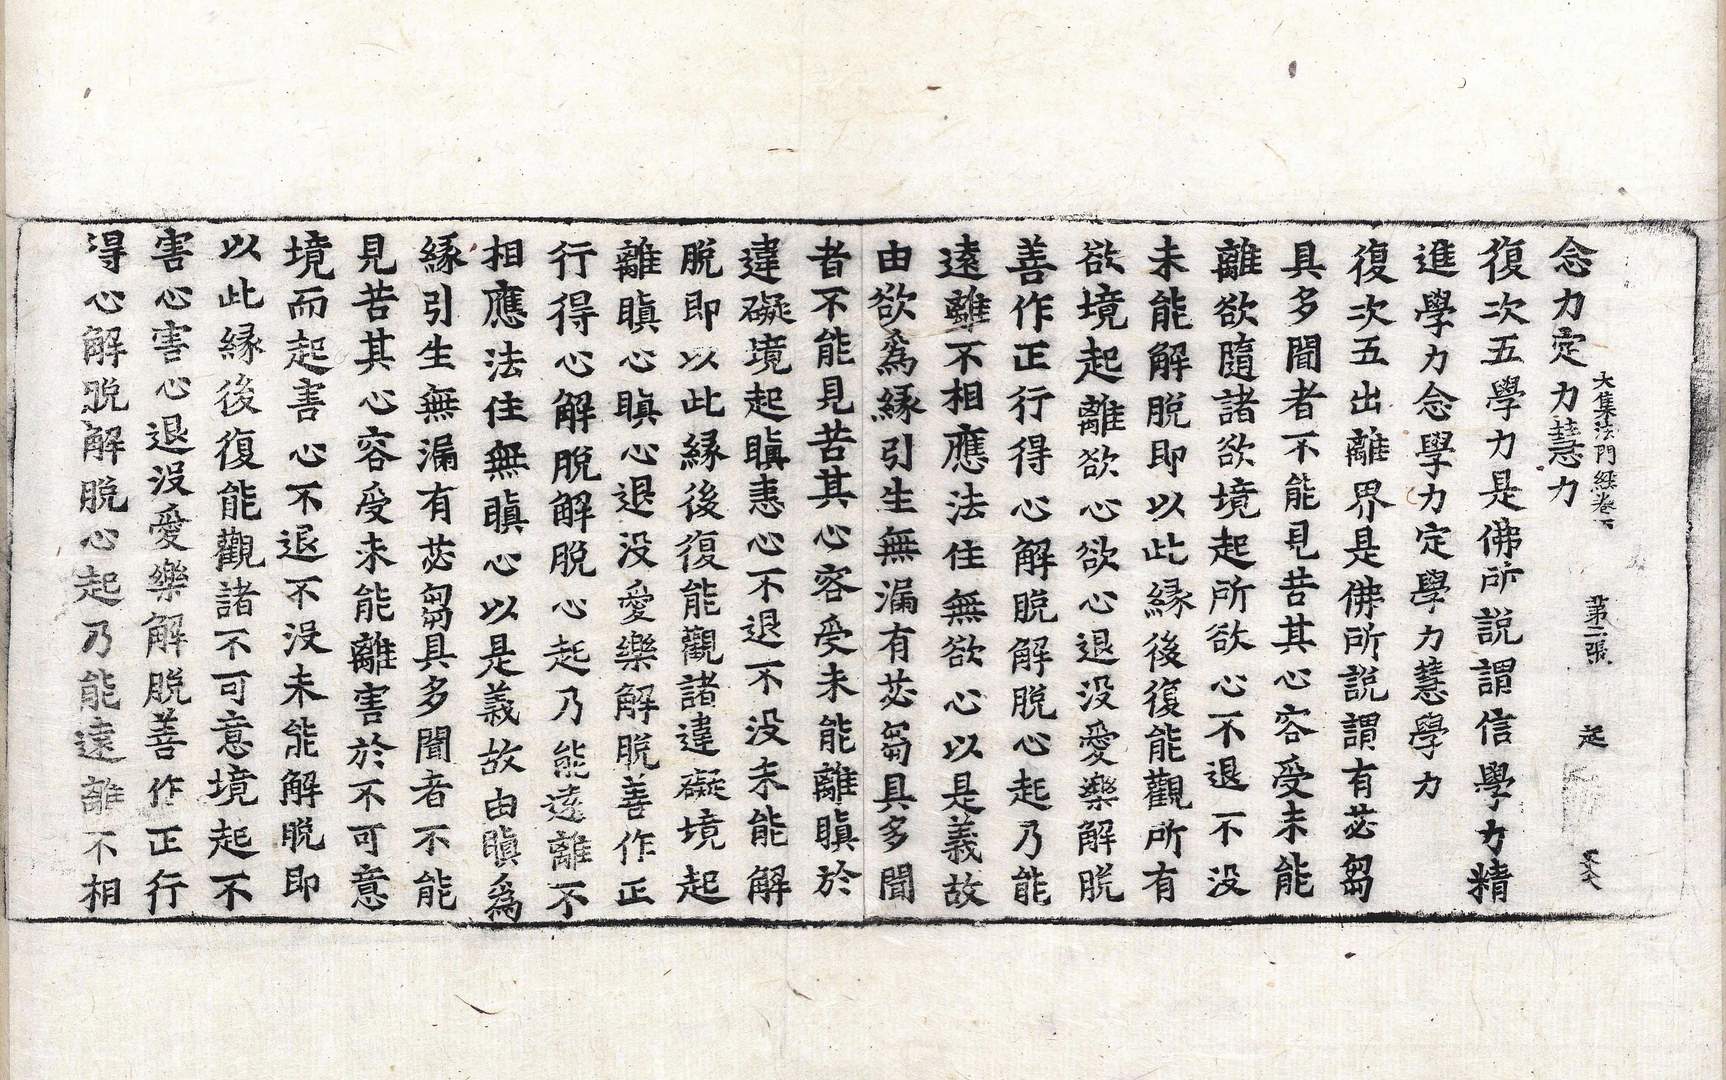 大集法門經卷下 第二張 起
念力定力慧力
復次五學力是佛所說謂信學力精
進學力念學力定學力慧學力
復次五出離界是佛所說謂有苾芻
具多聞者不能見苦其心容受未能
離欲隨諸欲境起所欲心不退不没
未能解脫即以此緣後復能觀所有
欲境起離欲心欲心退没愛樂解脫
善作正行得心解脫解脫心起乃能
遠離不相應法住無欲心以是義故
由欲爲緣引生無漏有苾芻具多聞
者不能見苦其心容受未能離瞋於
違礙境起瞋恚心不退不没未能解
脫即以此緣後復能觀諸違礙境起
離瞋心瞋心退没愛樂解脫善作正
行得心解脫解脫心起乃能遠離不
相應法住無瞋心以是義故由瞋爲
緣引生無漏有苾芻具多聞者不能
見苦其心容受未能離害於不可意
境而起害心不退不没未能解脫即
以此緣後復能觀諸不可意境起不
害心害心退没愛樂解脫善作正行
得心解脫解脫心起乃能遠離不相